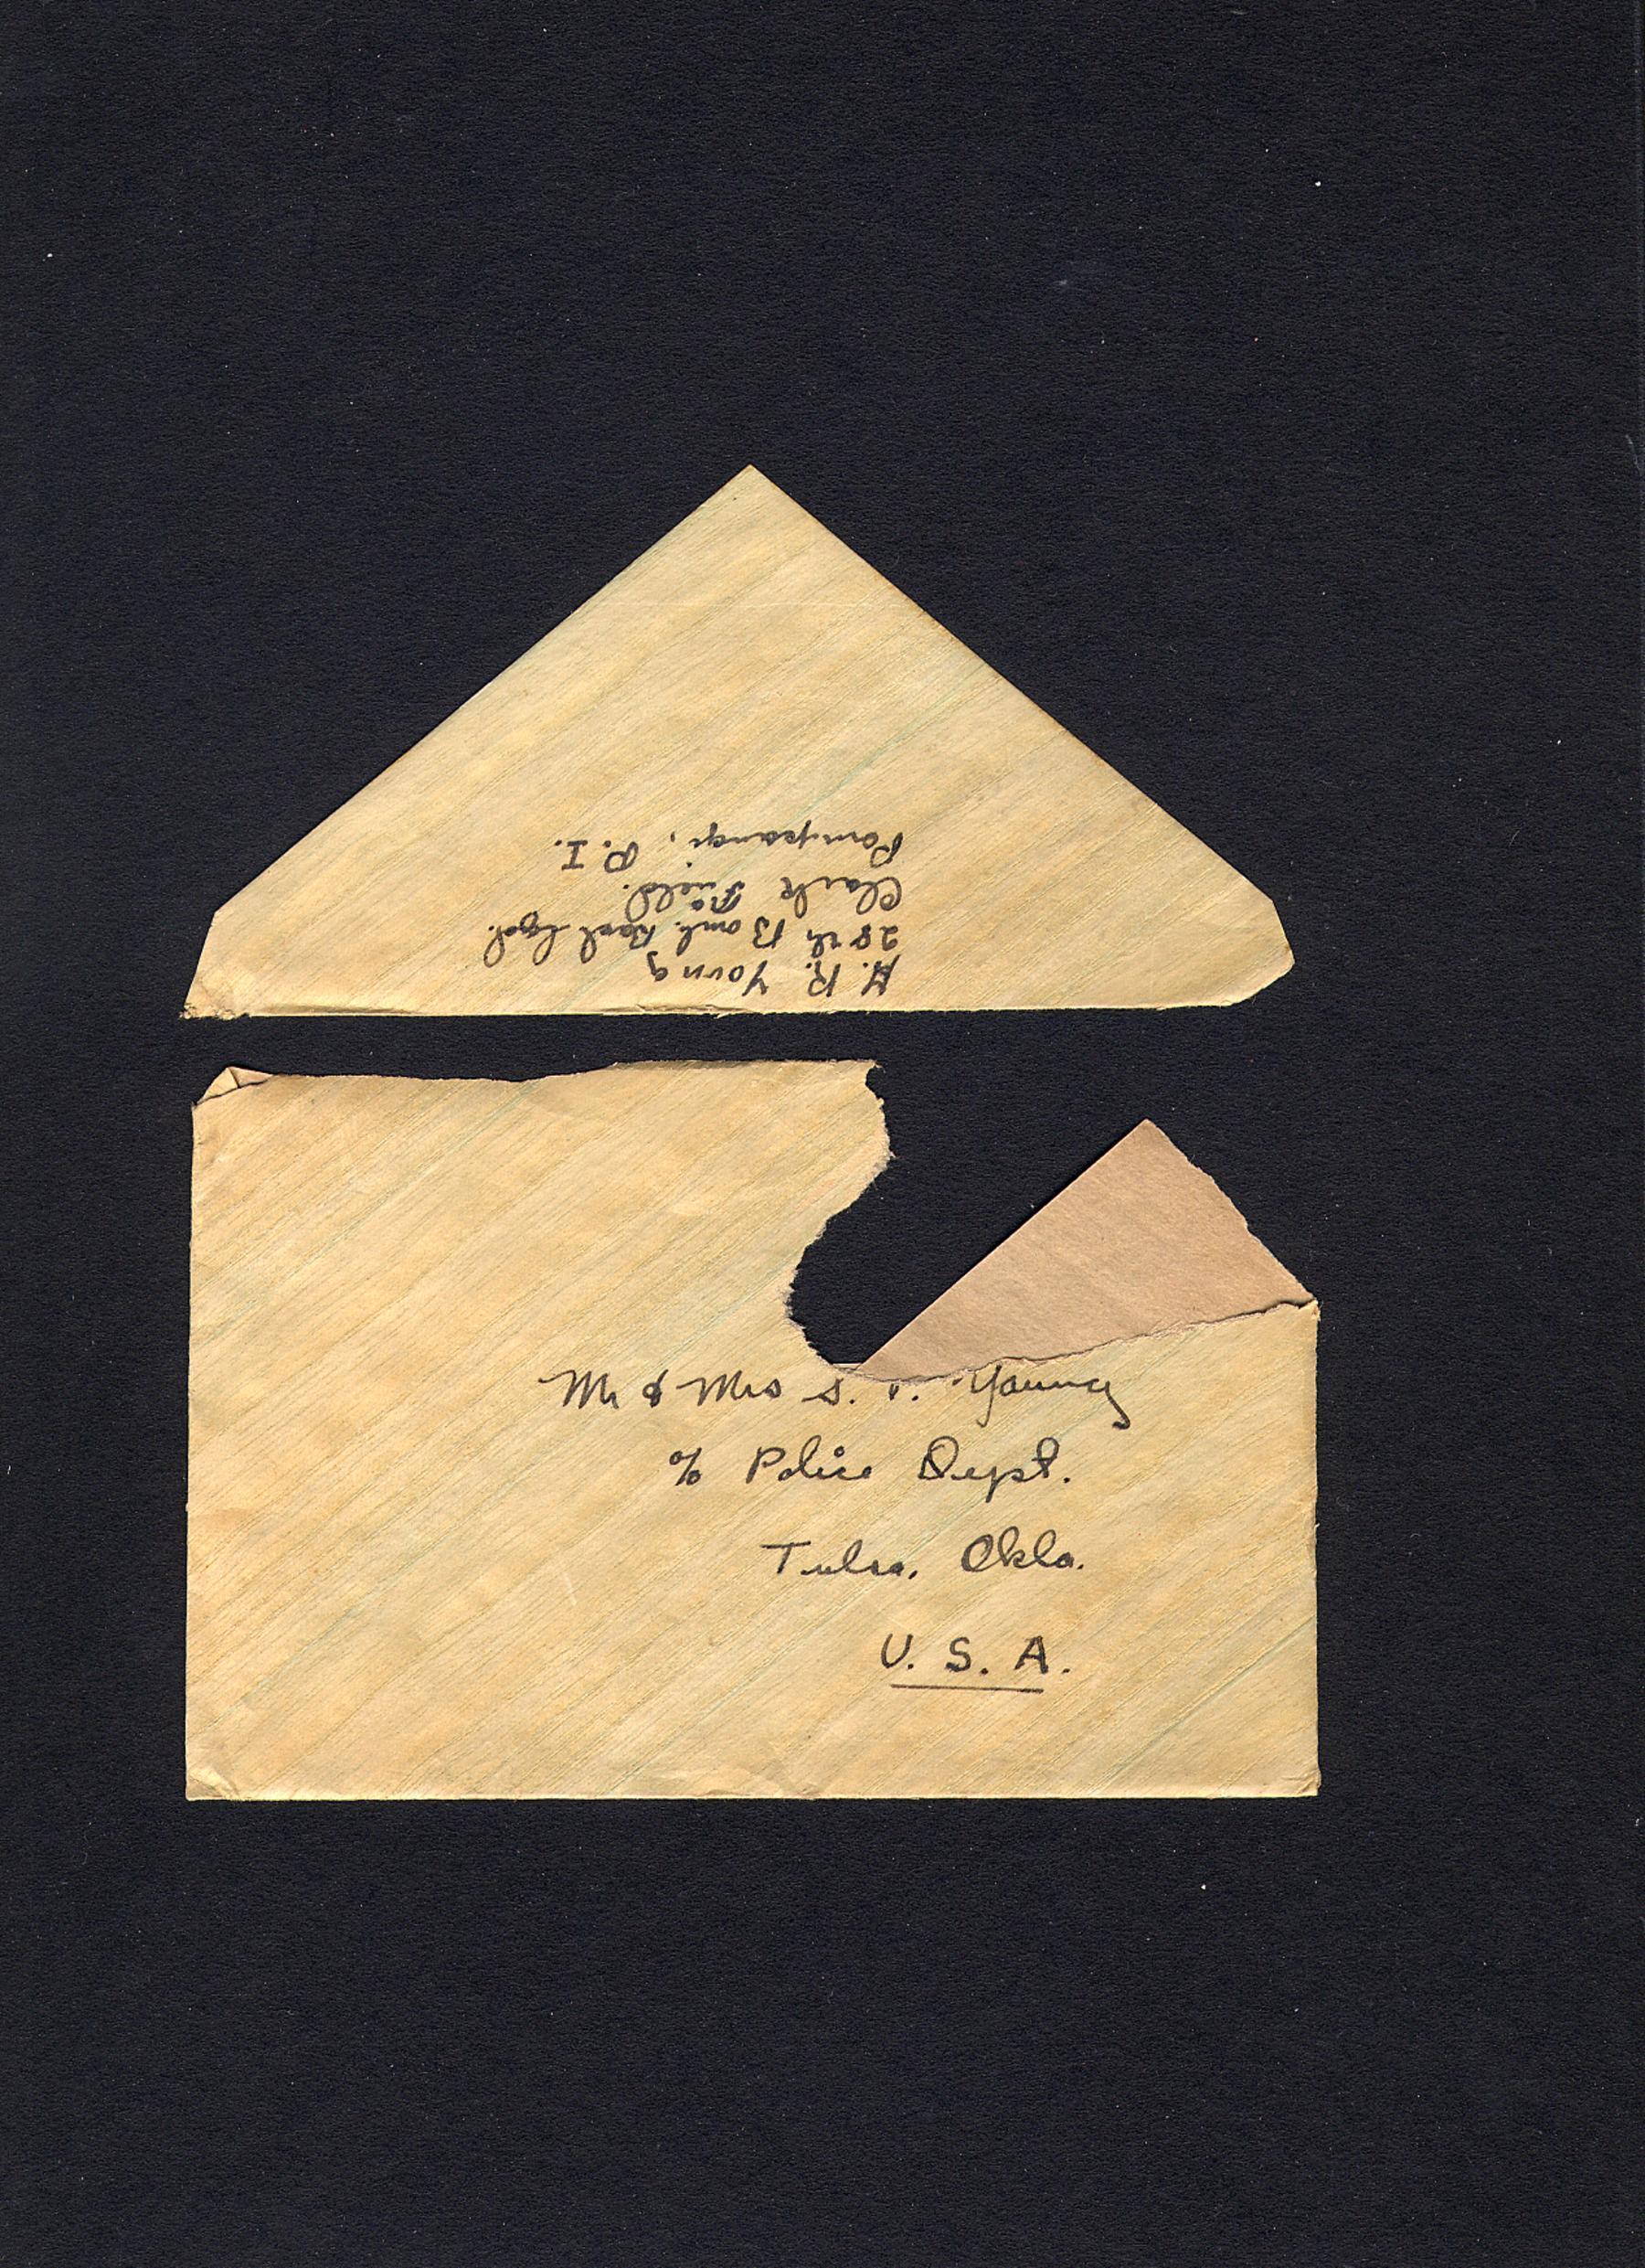 H. R. Young
28th Bomb. Bard. Sqd.
Clark Field.
Pampanga, P. I.
Mr & Mrs S. Young
% Police Dept.
Tulsa, Okla.
U. S. A.